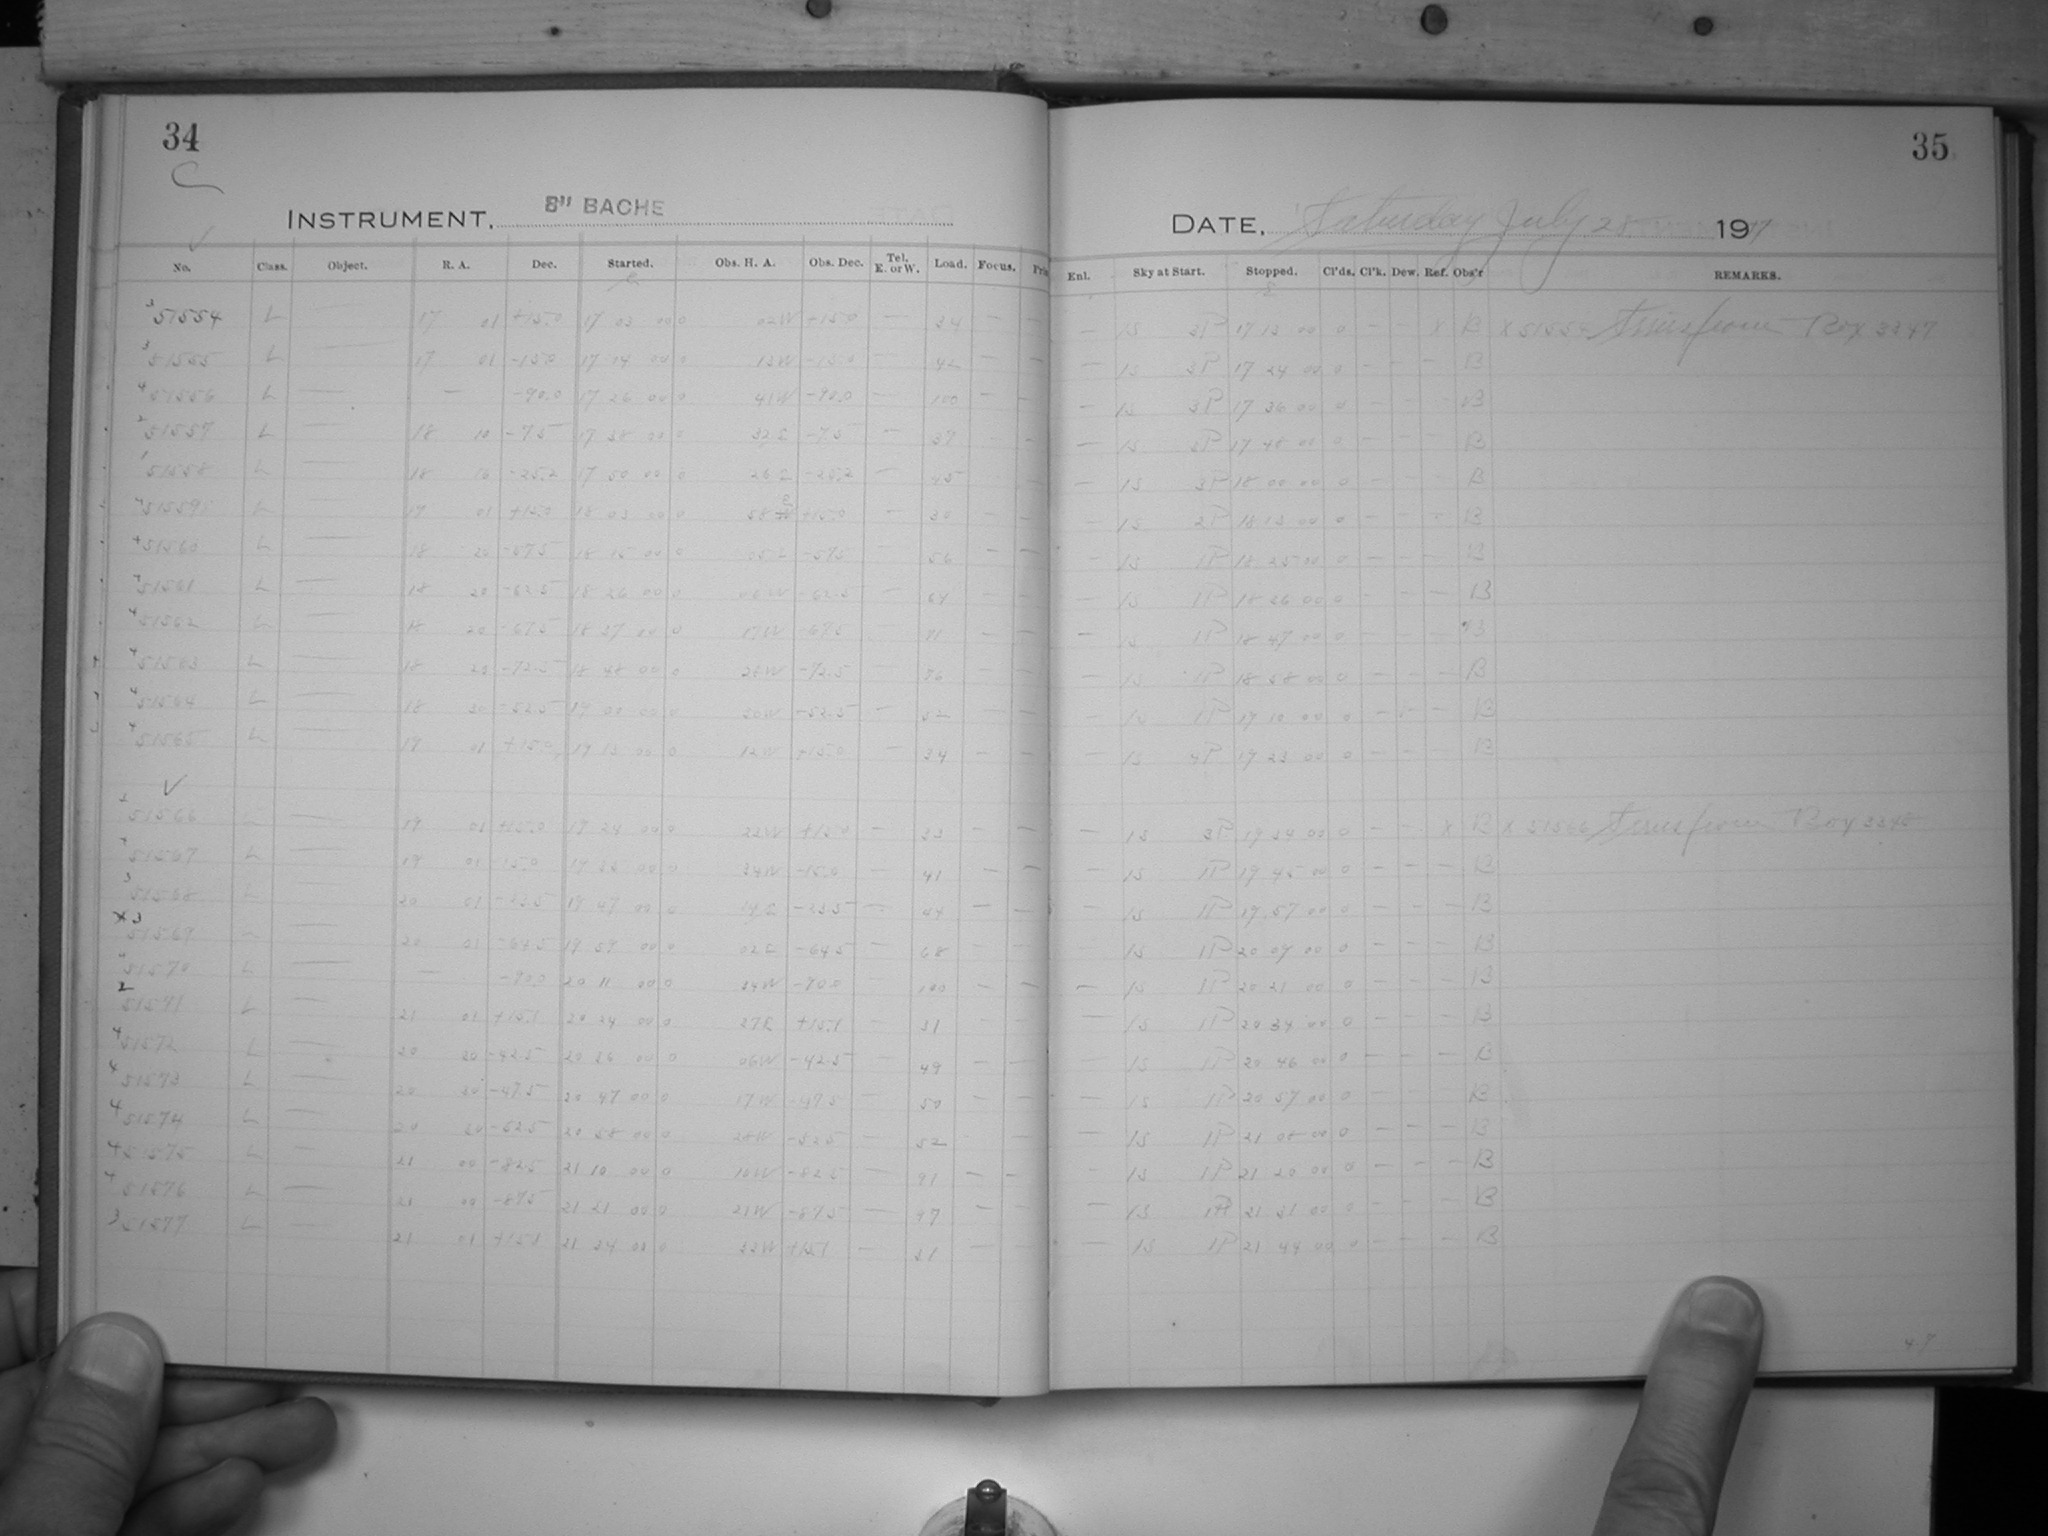 34
35
INSTRUMENT, 8" BACHE
DATE, Saturday July 28 19
No. Class. Object. R. A. Dec. Started. Obs. H. A. Obs. Dec. Tel. E. or W. Load. Focus. Enl. Sky at Start. Stopped. Cl'ds. Cl'k. Dew. Ref. Obs'r REMARKS.
3 51554 L — 17 01 +15.0 17 03 00 0 02W +15.0 — 34 — — — 1S 3P 17 13 00 0 — — X B X from Box 3347
3 51555 L — 17 01 -15.0 17 14 00 0 13W -15.0 — 42 — — — 1S 3P 17 24 00 0 — — - B
4 51556 L — — -90.0 17 26 00 0 41W -90.0 — 100 — — — 1S 3P 17 36 00 0 - - - B
2 51557 L — 18 10 -7.5 17 38 00 0 32E -7.5 — 37 — 1S 3P 17 48 00 0 - - - B
1 51558 L — 18 16 -25.2 17 50 00 0 26E -25.2 — 45 1S 3P 18 00 00 0 - - - B
51559 L — 19 01 +15.0 18 03 00 0 58 E +15.0 - 1S 2P 18 13 00 0 - - - B
4 51560 L — 18 20 -57.5 18 15 00 0 05E -57.5 56 — — — 1S 1P 18 25 00 0 - - - B
51561 L — 18 20 -62.5 18 26 00 0 06W -62.5 — 64 — — — 1S 1P 18 36 00 0 — — — B
4 51562 L — 18 20 -67.5 18 37 00 0 17W -67.5 71 — — — 1S 1P 18 47 00 0 — — — B
4 51563 L — 18 20 -72.5 18 48 00 0 28W -72.5 76 1S 1P 18 58 00 0 — — — B
4 51564 L — 18 30 -52.5 19 00 00 0 30W -52.5 — 52 — 1S 1P 19 10 00 0 — — — B
4 51565 L — 19 01 +15.0 19 13 00 0 12W +15.0 — 34 — — — 1S 4P 19 23 00 0 — — — B
51566 L — 19 01 +15.0 19 24 00 0 22W +15.0 — 33 — — — 1S 3P 19 34 00 0 — — X B X 51566 from Box
51567 L — 19 01 -15.0 19 35 00 0 34W -15.0 — 41 — — — 1S 1P 19 45 00 0 — — — B
3 51568 L — 20 01 -33.5 19 47 00 0 14E -33.5 — 44 — — — 1S 1P 19 57 00 0 — — — B
X3 51569 L — 20 01 -64.5 19 59 00 0 02E -64.5 — 68 1S 1P 20 09 00 0 — — — B
51570 L — — -90.0 20 11 00 0 34W -90.0 100 — — — 1S 1P 20 21 00 0 — — — B
2 51571 L — 21 01 +15.1 20 24 00 0 37E +15.1 — 31 — — — 1S 1P 20 34 00 0 — — — B
4 51572 L — 20 30 -42.5 20 36 00 0 06W -42.5 — 49 — 1S 1P 20 46 00 0 — — — B
4 51573 L — 20 30 -47.5 20 47 00 0 17W -47.5 — 50 — — — 1S 1P 20 57 00 0 — — — B
4 51574 L — 20 30 -52.5 20 58 00 0 28W -52.5 — 52 — 1S 1P 21 08 00 0 — — — B
4 51575 L — 21 00 -82.5 21 10 00 0 10W -82.5 — 91 — — 1S 1P 21 20 00 0 — — — B
4 51576 L — 21 00 -87.5 21 21 00 0 21W -87.5 — 97 — — — 1S 1P 21 31 00 0 — — — B
3 51577 L — 21 01 +15.1 21 34 00 0 33W +15.1 — 31 — — — 1S 1P 21 44 00 0 — — — B